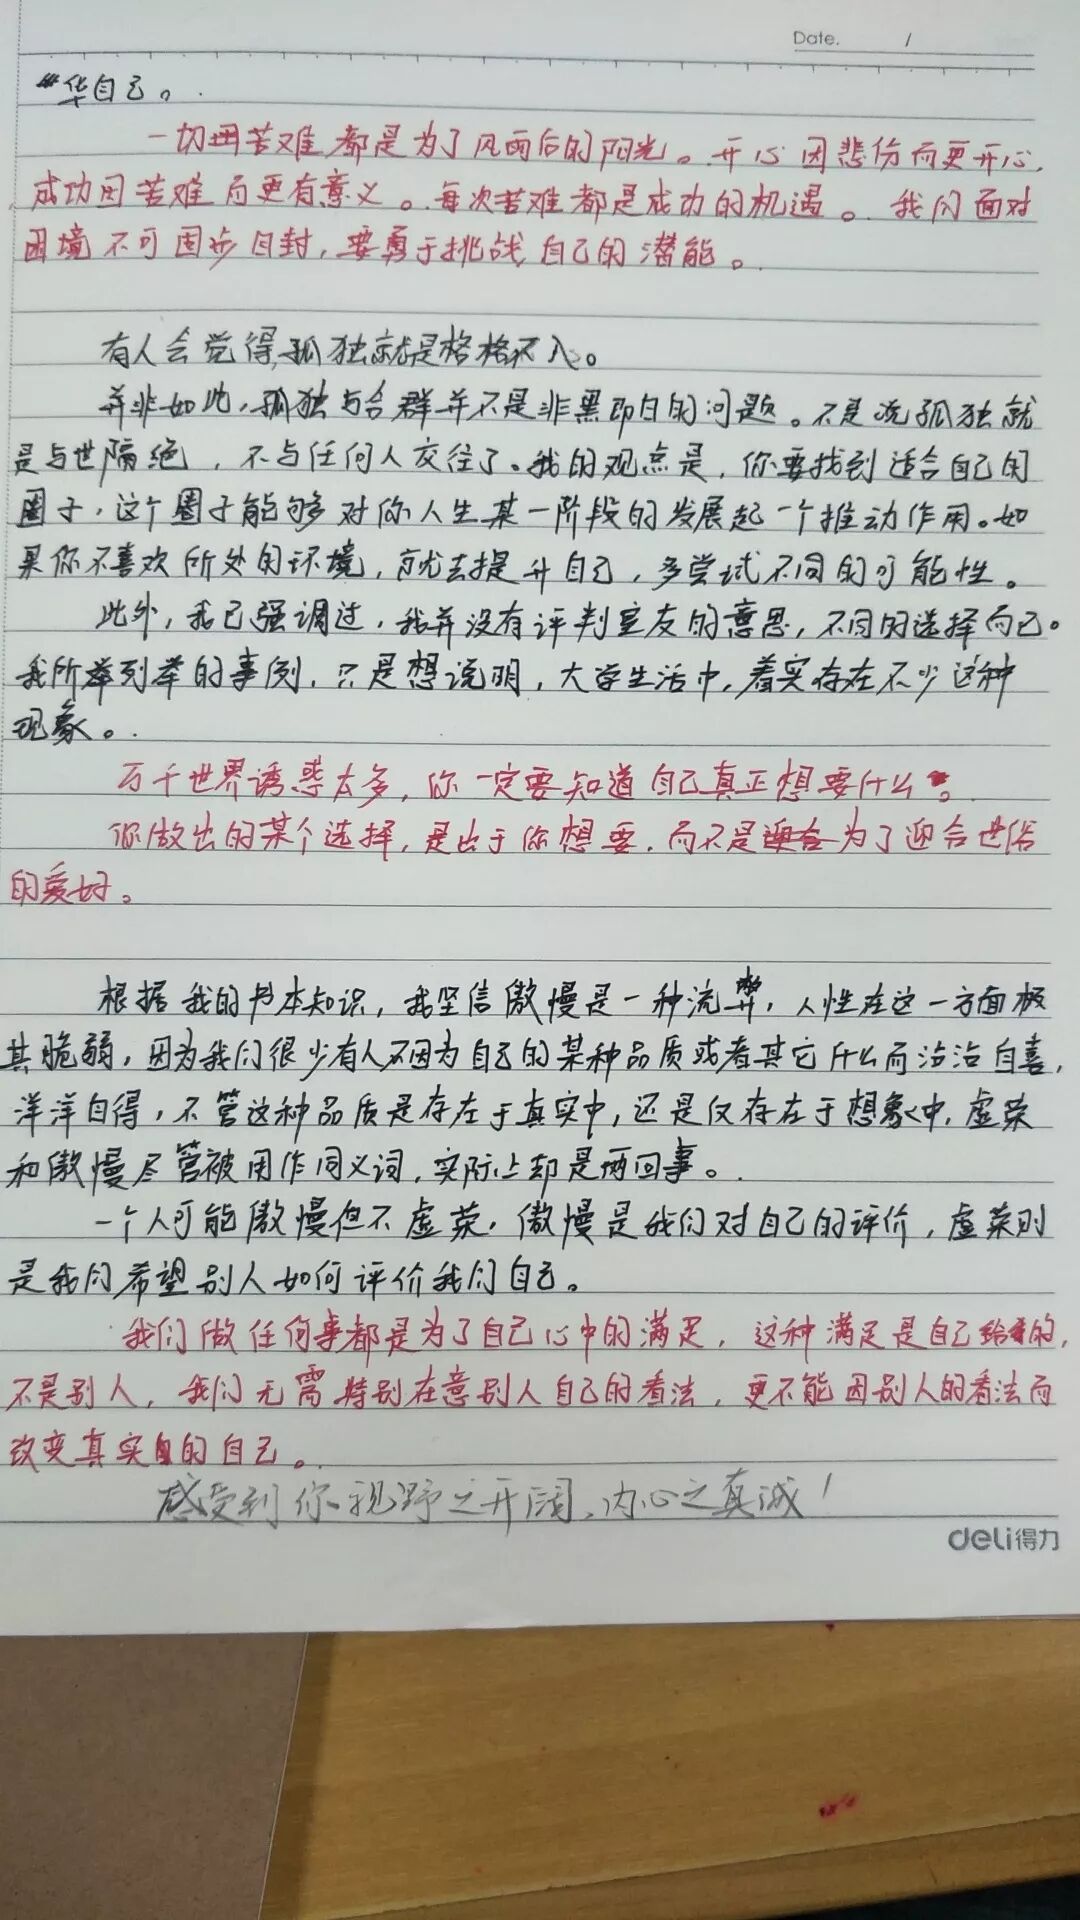 Date. /
华自己。
一切苦难都是为了风雨后的阳光。开心因悲伤而更开心,
成功因苦难而更有意义。每次苦难都是成功的机遇。我们面对
困境不可固步自封,要勇于挑战自己的潜能。
有人会觉得孤独就是格格不入。
并非如此,孤独与合群并不是非黑即白的问题。不是说孤独就
是与世隔绝,不与任何人交往了。我的观点是,你要找到适合自己的
圈子,这个圈子能够对你人生某一阶段的发展起一个推动作用。如
果你不喜欢所处的环境,就去提升自己,多尝试不同的可能性。
此外,我已强调过,我并没有评判室友的意思,不同的选择而已。
我所举列举的事例,只是想说明,大学生活中,着实存在不少这种
现象。
万千世界诱惑太多,你一定要知道自己真正想要什么。
你做出的某个选择,是出于你想要,而不是为了迎合世俗
的爱好。
根据我的书本知识,我坚信傲慢是一种流弊,人性在这一方面极
其脆弱,因为我们很少有人不因为自己的某种品质或者其它什么而沾沾自喜,
洋洋自得,不管这种品质是存在于真实中,还是仅存在于想象中,虚荣
和傲慢尽管被用作同义词,实际上却是两回事。
一个人可能傲慢但不虚荣,傲慢是我们对自己的评价,虚荣则
是我们希望别人如何评价我们自己。
我们做任何事都是为了自己心中的满足,这种满足是自己给的,
不是别人,我们无需特别在意别人自己的看法,更不能因别人的看法而
改变真实的自己。
感受到你视野之开阔、内心之真诚!
deli得力